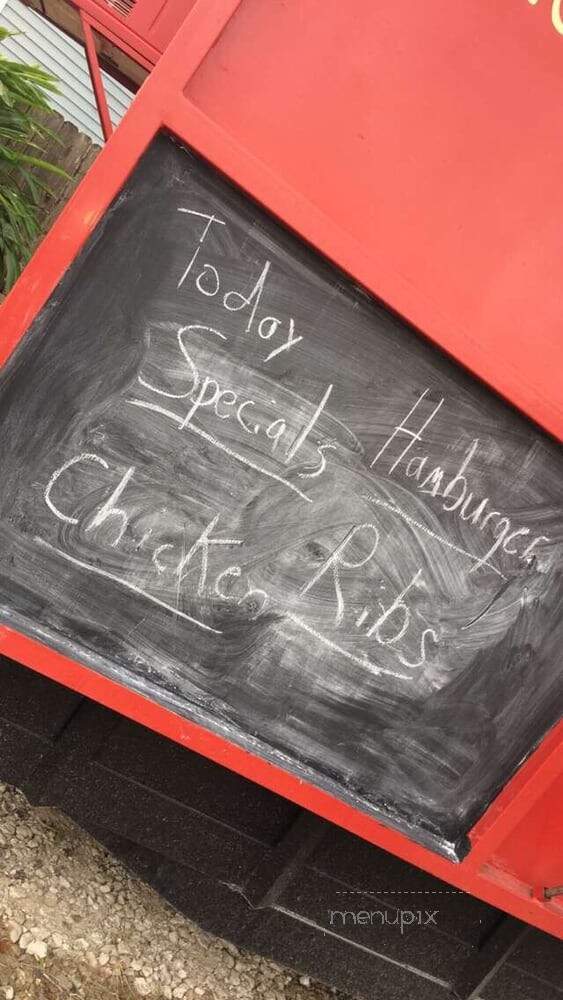 Today
Specials Hamburger
Chicken Ribs
menupix